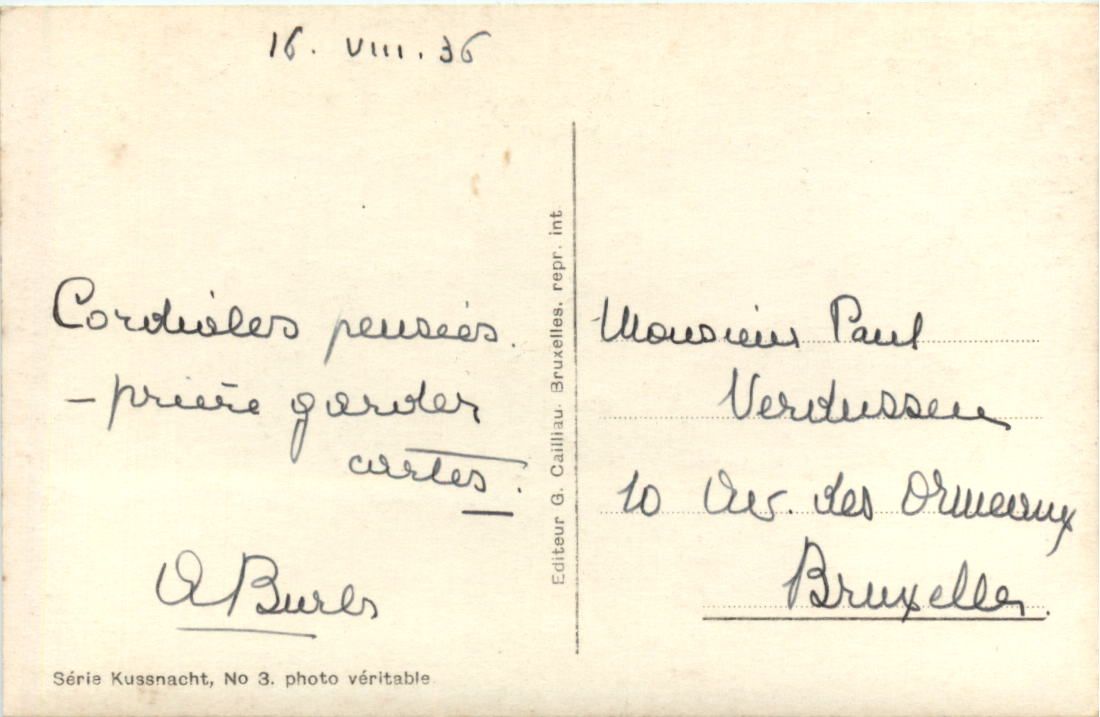 16. VIII. 36
Cordiales pensées.
– prière garder
cartes.
A Bures
Série Kussnacht, No 3. photo véritable
Editeur G. Cailliau. Bruxelles. repr. int
Monsieur Paul
Verdussen
10 Av. des Ormeaux
Bruxelles.